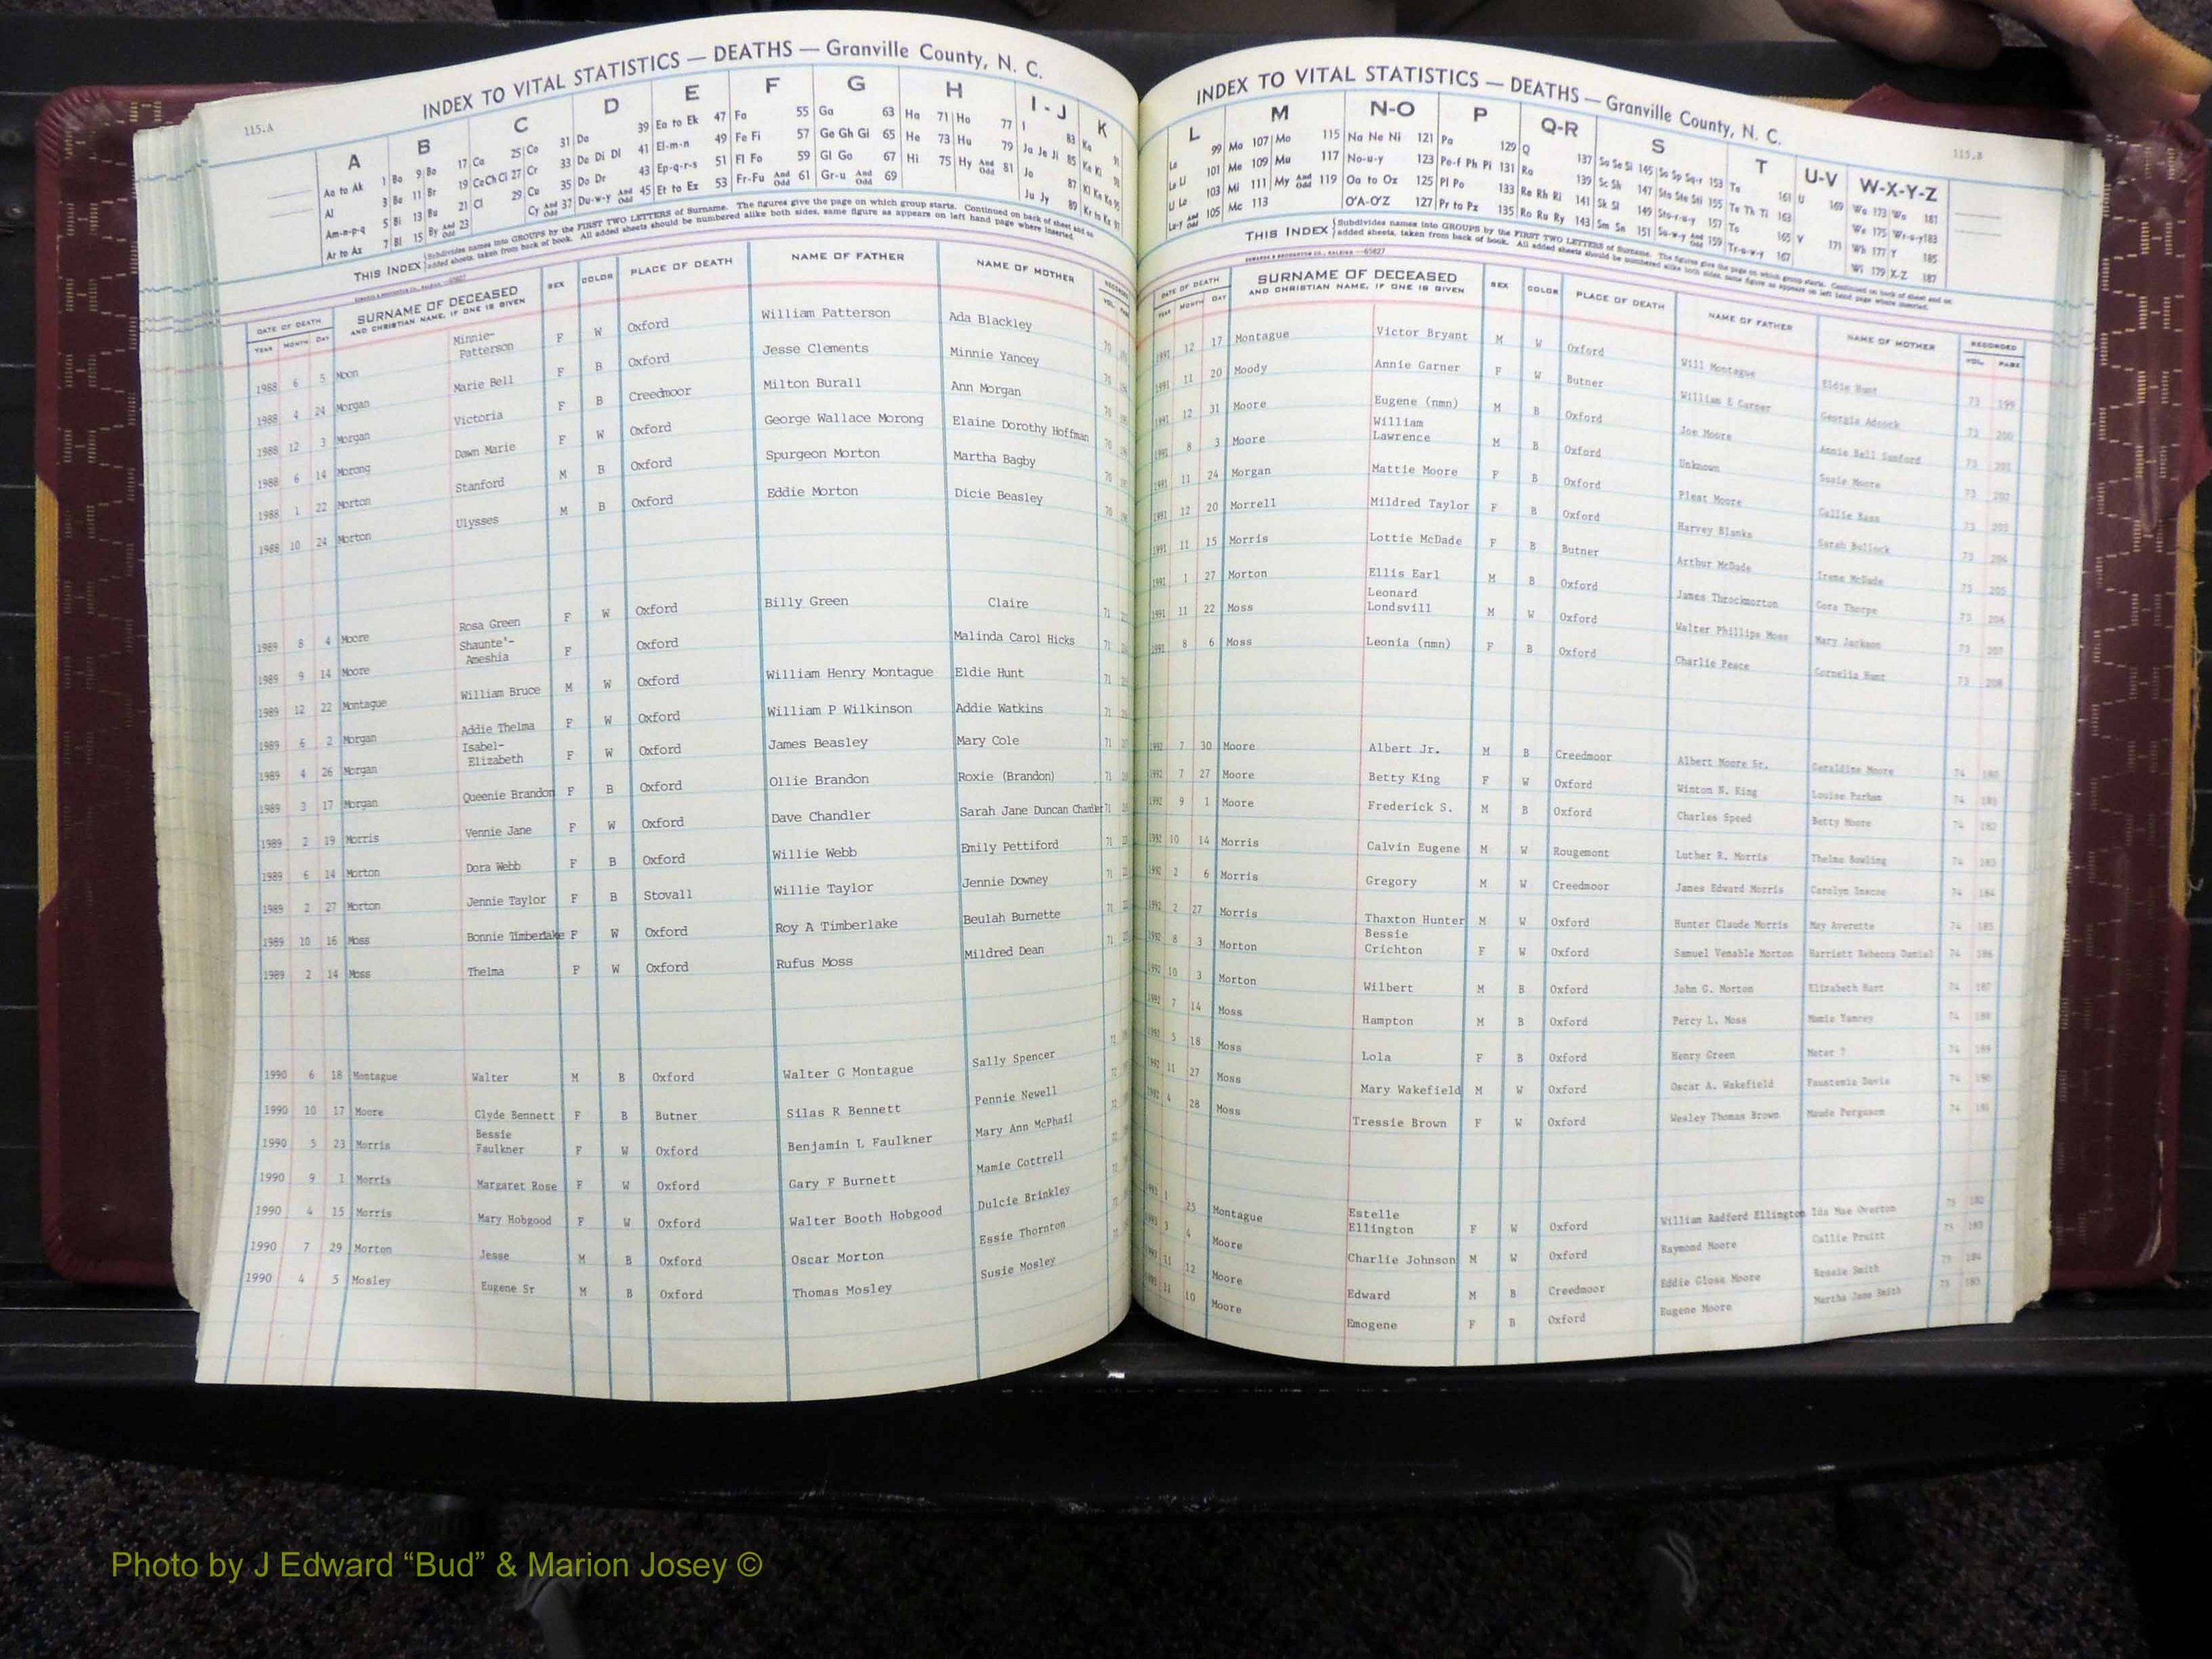 115.A
INDEX TO VITAL STATISTICS — DEATHS — Granville County, N. C.
A B C D E F G H I - J K
Aa to Ak 1 Ba 9 Bo 17 Ca 25 Co 31 Da 39 Ea to Ek 47 Fa 55 Ga 63 Ha 71 Ho 77 I 83 Ka
Al 3 Be 11 Br 19 Ce Ch Ci 27 Cr 33 De Di Dl 41 El-m-n 49 Fe Fi 57 Ge Gh Gi 65 He 73 Hu 79 Ja Je Ji 85 Ke Ki
Am-n-p-q 5 Bi 13 Bu 21 Cl 29 Cu 35 Do Dr 43 Ep-q-r-s 51 Fl Fo 59 Gl Go 67 Hi 75 Hy And Odd 81 Jo 87 Kl Kn Ko 95
Ar to Az 7 Bl 15 By And Odd 23 Cy And Odd 37 Du-w-y And Odd 45 Et to Ez 53 Fr-Fu And Odd 61 Gr-u And Odd 69 Ju Jy 89 Kr to Kz 97
THIS INDEX Subdivides names into GROUPS by the FIRST TWO LETTERS of Surname. The figures give the page on which group starts. Continued on back of sheet and on
added sheets, taken from back of book. All added sheets should be numbered alike both sides, same figure as appears on left hand page where inserted.
DATE OF DEATH SURNAME OF DECEASED SEX COLOR PLACE OF DEATH NAME OF FATHER NAME OF MOTHER RECORDED
YEAR MONTH DAY AND CHRISTIAN NAME, IF ONE IS GIVEN VOL. PAGE
1988 6 5 Moon Minnie-Patterson F W Oxford William Patterson Ada Blackley 70
1988 4 24 Morgan Marie Bell F B Oxford Jesse Clements Minnie Yancey 70
1988 12 3 Morgan Victoria F B Creedmoor Milton Burall Ann Morgan 70
1988 6 14 Morong Dawn Marie F W Oxford George Wallace Morong Elaine Dorothy Hoffman 70
1988 1 22 Morton Stanford M B Oxford Spurgeon Morton Martha Bagby 70
1988 10 24 Morton Ulysses M B Oxford Eddie Morton Dicie Beasley 70
1989 8 4 Moore Rosa Green F W Oxford Billy Green Claire 71
1989 9 14 Moore Shaunte'-Ameshia F Oxford Malinda Carol Hicks 71
1989 12 22 Montague William Bruce M W Oxford William Henry Montague Eldie Hunt 71
1989 6 2 Morgan Addie Thelma F W Oxford William P Wilkinson Addie Watkins 71
1989 4 26 Morgan Isabel-Elizabeth F W Oxford James Beasley Mary Cole 71
1989 3 17 Morgan Queenie Brandon F B Oxford Ollie Brandon Roxie (Brandon) 71
1989 2 19 Morris Vennie Jane F W Oxford Dave Chandler Sarah Jane Duncan Chandler 71
1989 6 14 Morton Dora Webb F B Oxford Willie Webb Emily Pettiford 71
1989 2 27 Morton Jennie Taylor F B Stovall Willie Taylor Jennie Downey 71
1989 10 16 Moss Bonnie Timberlake F W Oxford Roy A Timberlake Beulah Burnette 71
1989 2 14 Moss Thelma F W Oxford Rufus Moss Mildred Dean 71
1990 6 18 Montague Walter M B Oxford Walter G Montague Sally Spencer 72
1990 10 17 Moore Clyde Bennett F B Butner Silas R Bennett Pennie Newell 72
1990 5 23 Morris Bessie Faulkner F W Oxford Benjamin L Faulkner Mary Ann McPhail 72
1990 9 1 Morris Margaret Rose F W Oxford Gary F Burnett Mamie Cottrell 72
1990 4 15 Morris Mary Hobgood F W Oxford Walter Booth Hobgood Dulcie Brinkley 72
1990 7 29 Morton Jesse M B Oxford Oscar Morton Essie Thornton 72
1990 4 5 Mosley Eugene Sr M B Oxford Thomas Mosley Susie Mosley
115.B
INDEX TO VITAL STATISTICS — DEATHS — Granville County, N. C.
L M N-O P Q-R S T U-V W-X-Y-Z
La 99 Ma 107 Mo 115 Na Ne Ni 121 Pa 129 Q 137 Sa Se Si 145 So Sp Sq-r 153 Ta 161 U 169 Wa 173 Wo 181
Le Li 101 Me 109 Mu 117 No-u-y 123 Pe-f Ph Pi 131 Ra 139 Sc Sh 147 Sta Ste Sti 155 Te Th Ti 163 We 175 Wr-u-y 183
Ll Lo 103 Mi 111 My And Odd 119 Oa to Oz 125 Pl Po 133 Re Rh Ri 141 Sk Sl 149 Sto-r-u-y 157 To 165 V 171 Wh 177 Y 185
Lu-y And Odd 105 Mc 113 O'A-O'Z 127 Pr to Pz 135 Ro Ru Ry 143 Sm Sn 151 Su-w-y And Odd 159 Tr-u-w-y 167 Wi 179 X-Z 187
THIS INDEX Subdivides names into GROUPS by the FIRST TWO LETTERS of Surname. The figures give the page on which group starts. Continued on back of sheet and on
added sheets, taken from back of book. All added sheets should be numbered alike both sides, same figure as appears on left hand page where inserted.
DATE OF DEATH SURNAME OF DECEASED SEX COLOR PLACE OF DEATH NAME OF FATHER NAME OF MOTHER RECORDED
YEAR MONTH DAY AND CHRISTIAN NAME, IF ONE IS GIVEN VOL. PAGE
1991 12 17 Montague Victor Bryant M W Oxford Will Montague Eldie Hunt 73 199
1991 11 20 Moody Annie Garner F W Butner William E Garner Georgia Adcock 73 200
1991 12 31 Moore Eugene (nmn) M B Oxford Joe Moore Annie Bell Sanford 73 201
1991 8 3 Moore William Lawrence M B Oxford Unknown Susie Moore 73 202
1991 11 24 Morgan Mattie Moore F B Oxford Pleat Moore Callie Bass 73 203
1991 12 20 Morrell Mildred Taylor F B Oxford Harvey Blanks Sarah Bullock 73 204
1991 11 15 Morris Lottie McDade F B Butner Arthur McDade Irene McDade 73 205
1991 1 27 Morton Ellis Earl M B Oxford James Throckmorton Cora Thorpe 73 206
1991 11 22 Moss Leonard Londsvill M W Oxford Walter Phillips Moss Mary Jackson 73 207
1991 8 6 Moss Leonia (nmn) F B Oxford Charlie Peace Cornelia Hunt 73 208
1992 7 30 Moore Albert Jr. M B Creedmoor Albert Moore Sr. Geraldine Moore 74 180
1992 7 27 Moore Betty King F W Oxford Winton N. King Louise Parham 74 181
1992 9 1 Moore Frederick S. M B Oxford Charles Speed Betty Moore 74 182
1992 10 14 Morris Calvin Eugene M W Rougemont Luther R. Morris Thelma Bowling 74 183
1992 2 6 Morris Gregory M W Creedmoor James Edward Morris Carolyn Inscoe 74 184
1992 2 27 Morris Thaxton Hunter M W Oxford Hunter Claude Morris May Averette 74 185
1992 8 3 Morton Bessie Crichton F W Oxford Samuel Venable Morton Harriett Rebecca Daniel 74 186
1992 10 3 Morton Wilbert M B Oxford John G. Morton Elizabeth Hart 74 187
1992 7 14 Moss Hampton M B Oxford Percy L. Moss Mamie Yancey 74 188
1992 5 18 Moss Lola F B Oxford Henry Green Meter ? 74 189
1992 11 27 Moss Mary Wakefield M W Oxford Oscar A. Wakefield Faustenia Davis 74 190
1992 4 28 Moss Tressie Brown F W Oxford Wesley Thomas Brown Maude Ferguson 74 191
1993 1 25 Montague Estelle Ellington F W Oxford William Radford Ellington Ida Mae Overton 75 182
1993 3 4 Moore Charlie Johnson M W Oxford Raymond Moore Callie Pruitt 75 183
1993 11 12 Moore Edward M B Creedmoor Eddie Gloss Moore Bessie Smith 75 184
1993 11 10 Moore Emogene F B Oxford Eugene Moore Martha Jane Smith 75 185
Photo by J Edward “Bud” & Marion Josey ©